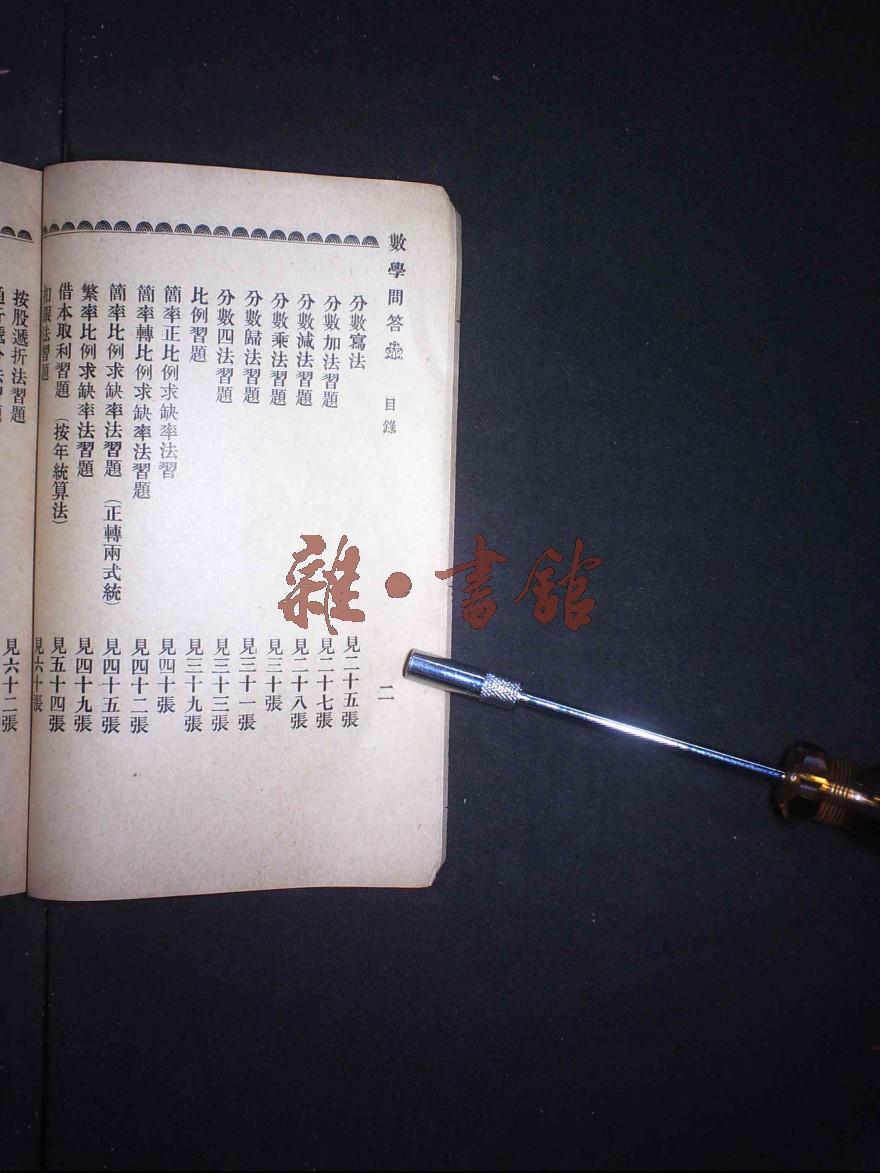 數學問答 目錄 二
分數寫法 見二十五張
分數加法習題 見二十七張
分數減法習題 見二十八張
分數乘法習題 見三十張
分數歸法習題 見三十一張
分數四法習題 見三十三張
比例習題 見三十九張
簡率正比例求缺率法習 見四十張
簡率轉比例求缺率法習題 見四十二張
簡率比例求缺率法習題 (正轉兩式統) 見四十五張
繁率比例求缺率法習題 見四十九張
借本取利習題 (按年統算法) 見五十四張
法習題 見六十張
按股遞折法習題 見六十二張
雜·書館